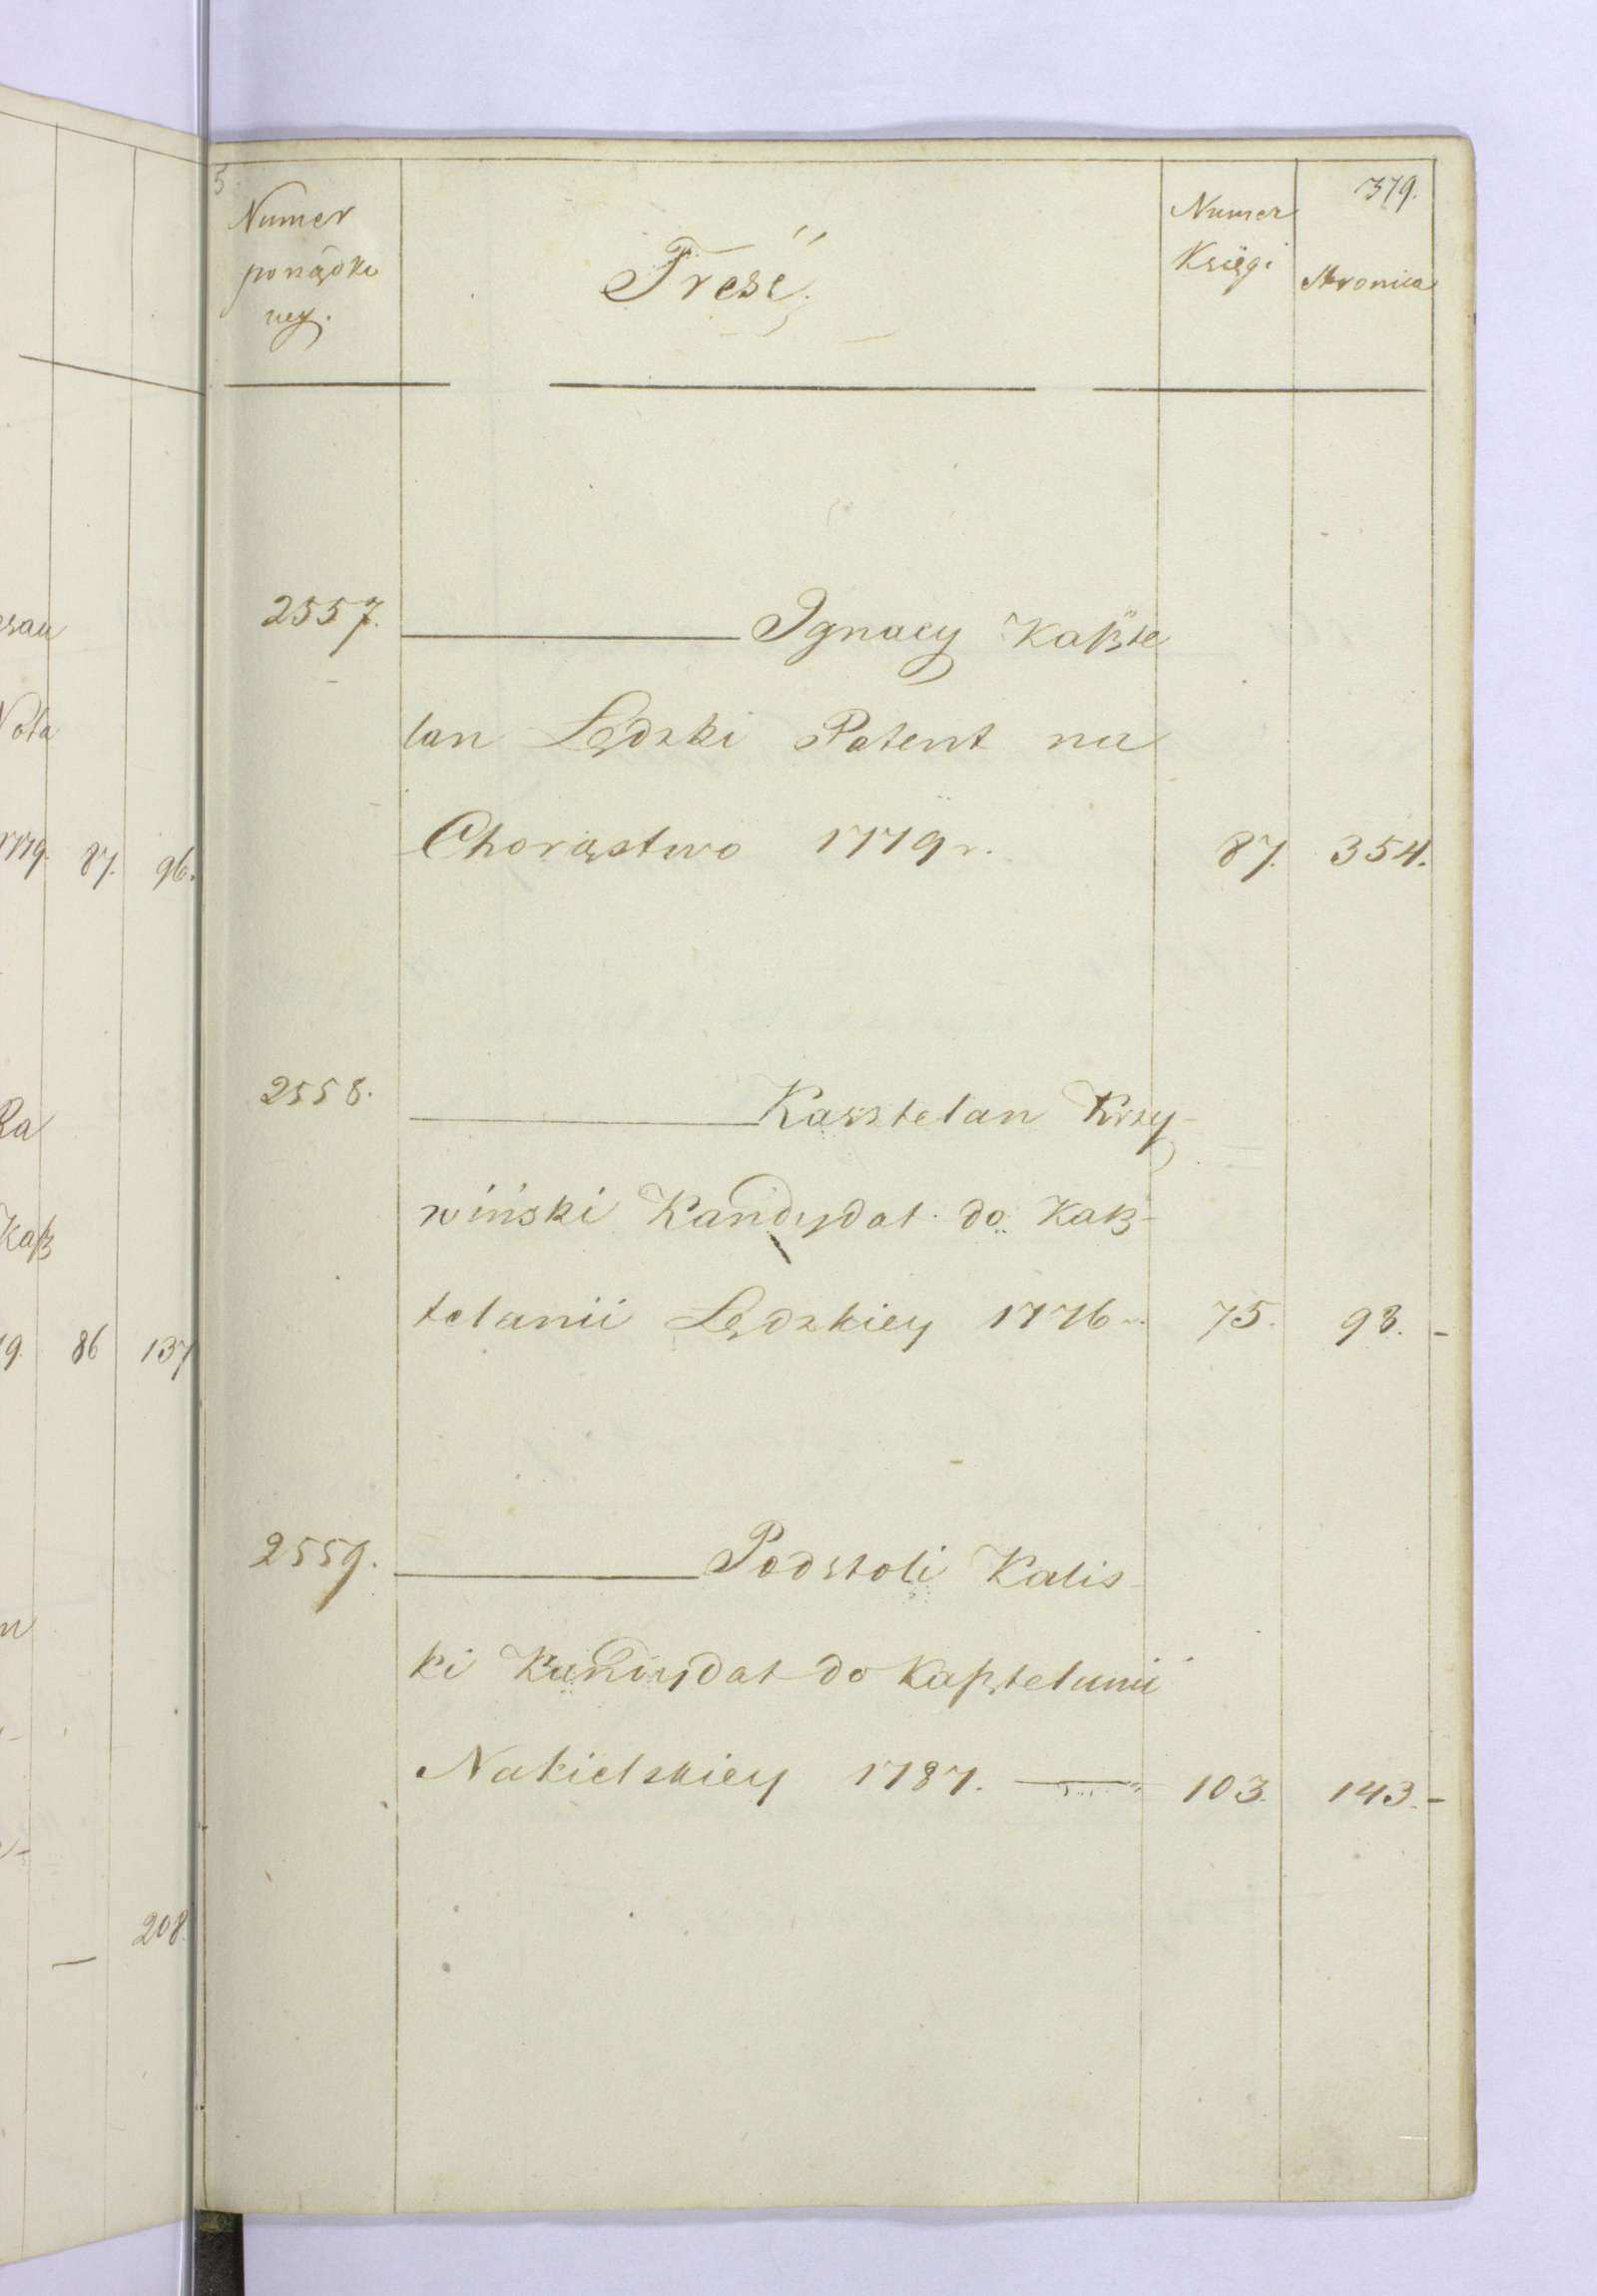 379.
Numer
porządko
wy.
Treść.
Numer
Księgi
Stronica
2557. Ignacy Kaszte
lan Lędzki Patent na
Chorąstwo 1779 r. 87. 354.
2558. Kasstelan Krzy-
wiński Kandydat do Kasz-
telanii Lędzkiey 1776 75. 93.-
2559. Podstoli Kalis
ki Kandydat do Kasztelanii
Nakielskiey 1787. — 103. 143.-
Nota
1779. 87. 96.
Ra
Kasz
9. 86 137
208.